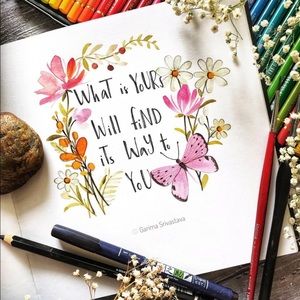 What is YOURS
Will FiND
iTs WAY to
YOU
© Garima Srivastava